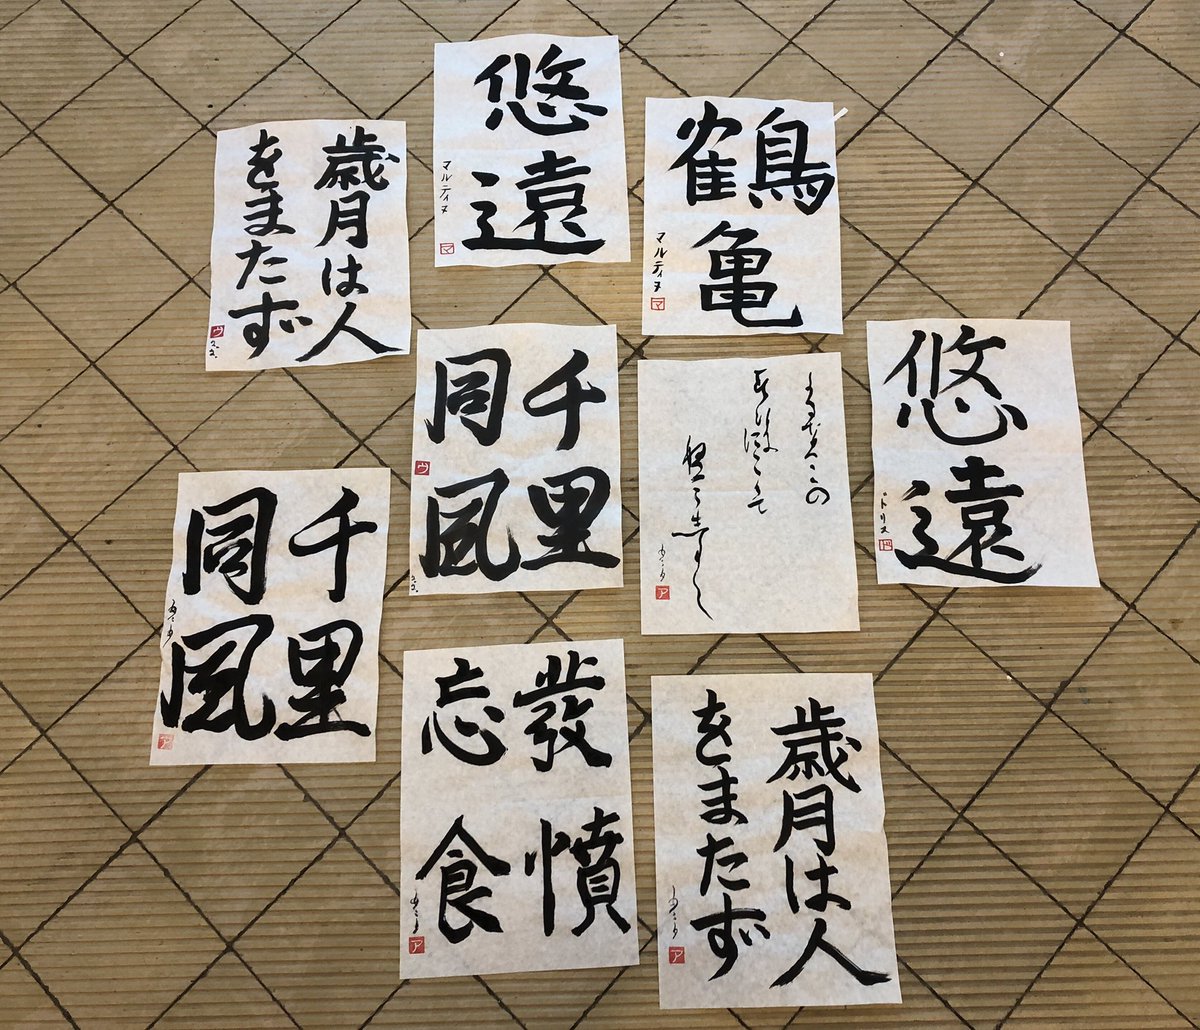 悠
遠
マルティヌ
マ
鶴
亀
マルティヌ
マ
歳月は人
をまたず
ウ
千里
同風
ウ
悠
遠
ドリス
ド
千里
同風
ア
ア
發憤
忘食
ア
歳月は人
をまたず
ア